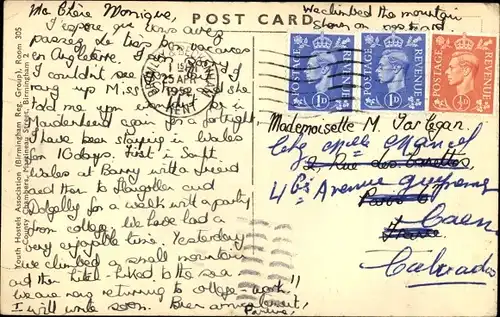 POST CARD
We climbed the mountain
shown on
Ma Chère Monique,
J'espère que vous avez
passé de très bon vacances
en Angleterre. I am sorry
I couldn't see I
rang up Miss and she
told me you
Maidenhead again for a fortnight.
I have been staying in Wales
for 10 days. First in South
Wales at Barry with a friend
and then to Llangollen and
Dolgelly for a walk with a party
from college. We have had a
very enjoyable time. Yesterday
we climbed a small mountain
and then hitch-hiked to the sea.
We are now returning to college - work!!
I will write soon. Bien amicalement,
BIRMINGHAM
25 AP
1952
POSTAGE REVENUE
1D
POSTAGE REVENUE
1D
POSTAGE REVENUE
½D
Mademoiselle M. Jarlegan.
chez
2, Rue des
46 Avenue
Paris
Caen
France
Calvados
Youth Hostels Association (Birmingham Reg. Group), Room 305
County Chambers, Martineau Street, Birmingham 2